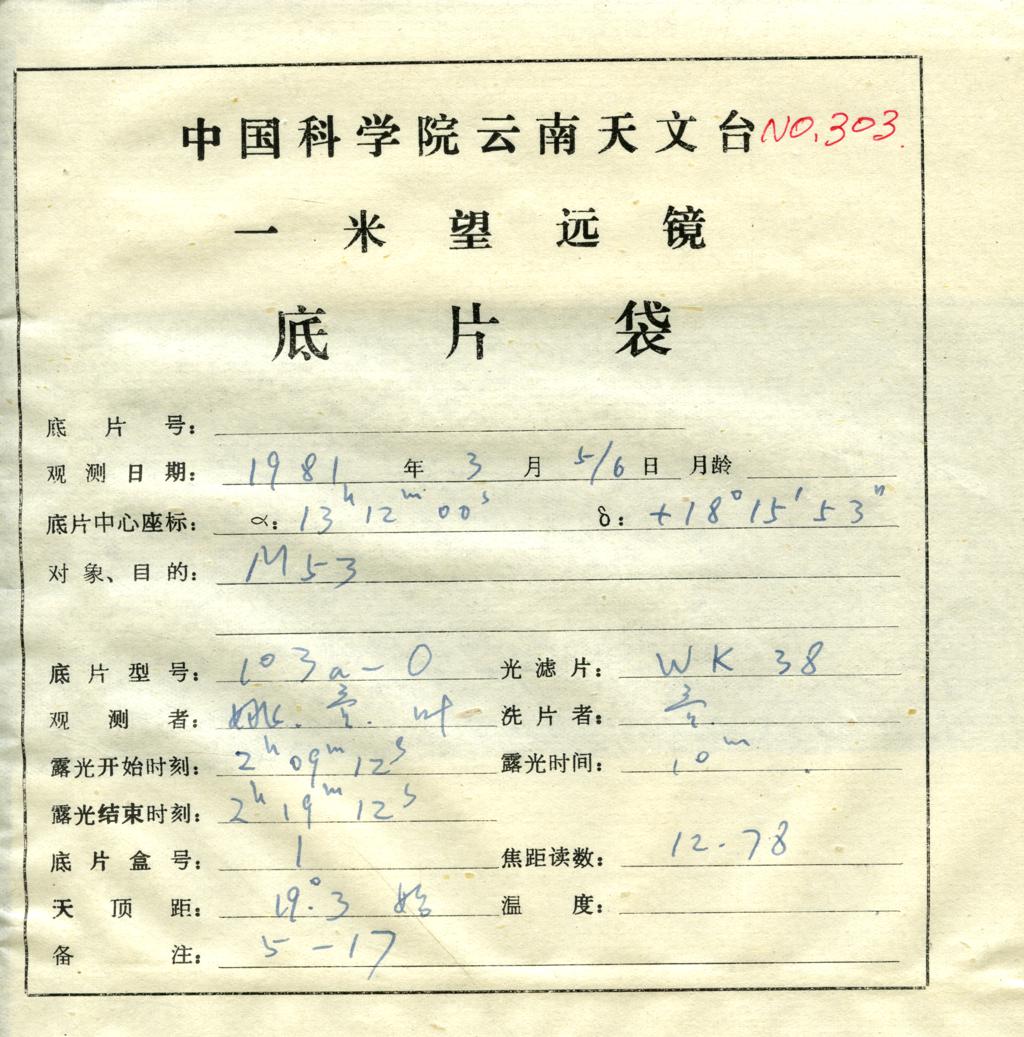 中国科学院云南天文台 NO.303.
一米望远镜
底片袋
底片号：
观测日期： 1981 年 3 月 5/6 日 月龄
底片中心座标： α： 13h 12m 00s δ： +18° 15' 53"
对象、目的： M53
底片型号： 103a-O 光滤片： WK 38
观测者： 姚. 叶 洗片者：
露光开始时刻： 2h 09m 12s 露光时间： 10m
露光结束时刻： 2h 19m 12s
底片盒号： 1 焦距读数： 12.78
天顶距： 19°.3 始 温度：
备注： 5-17